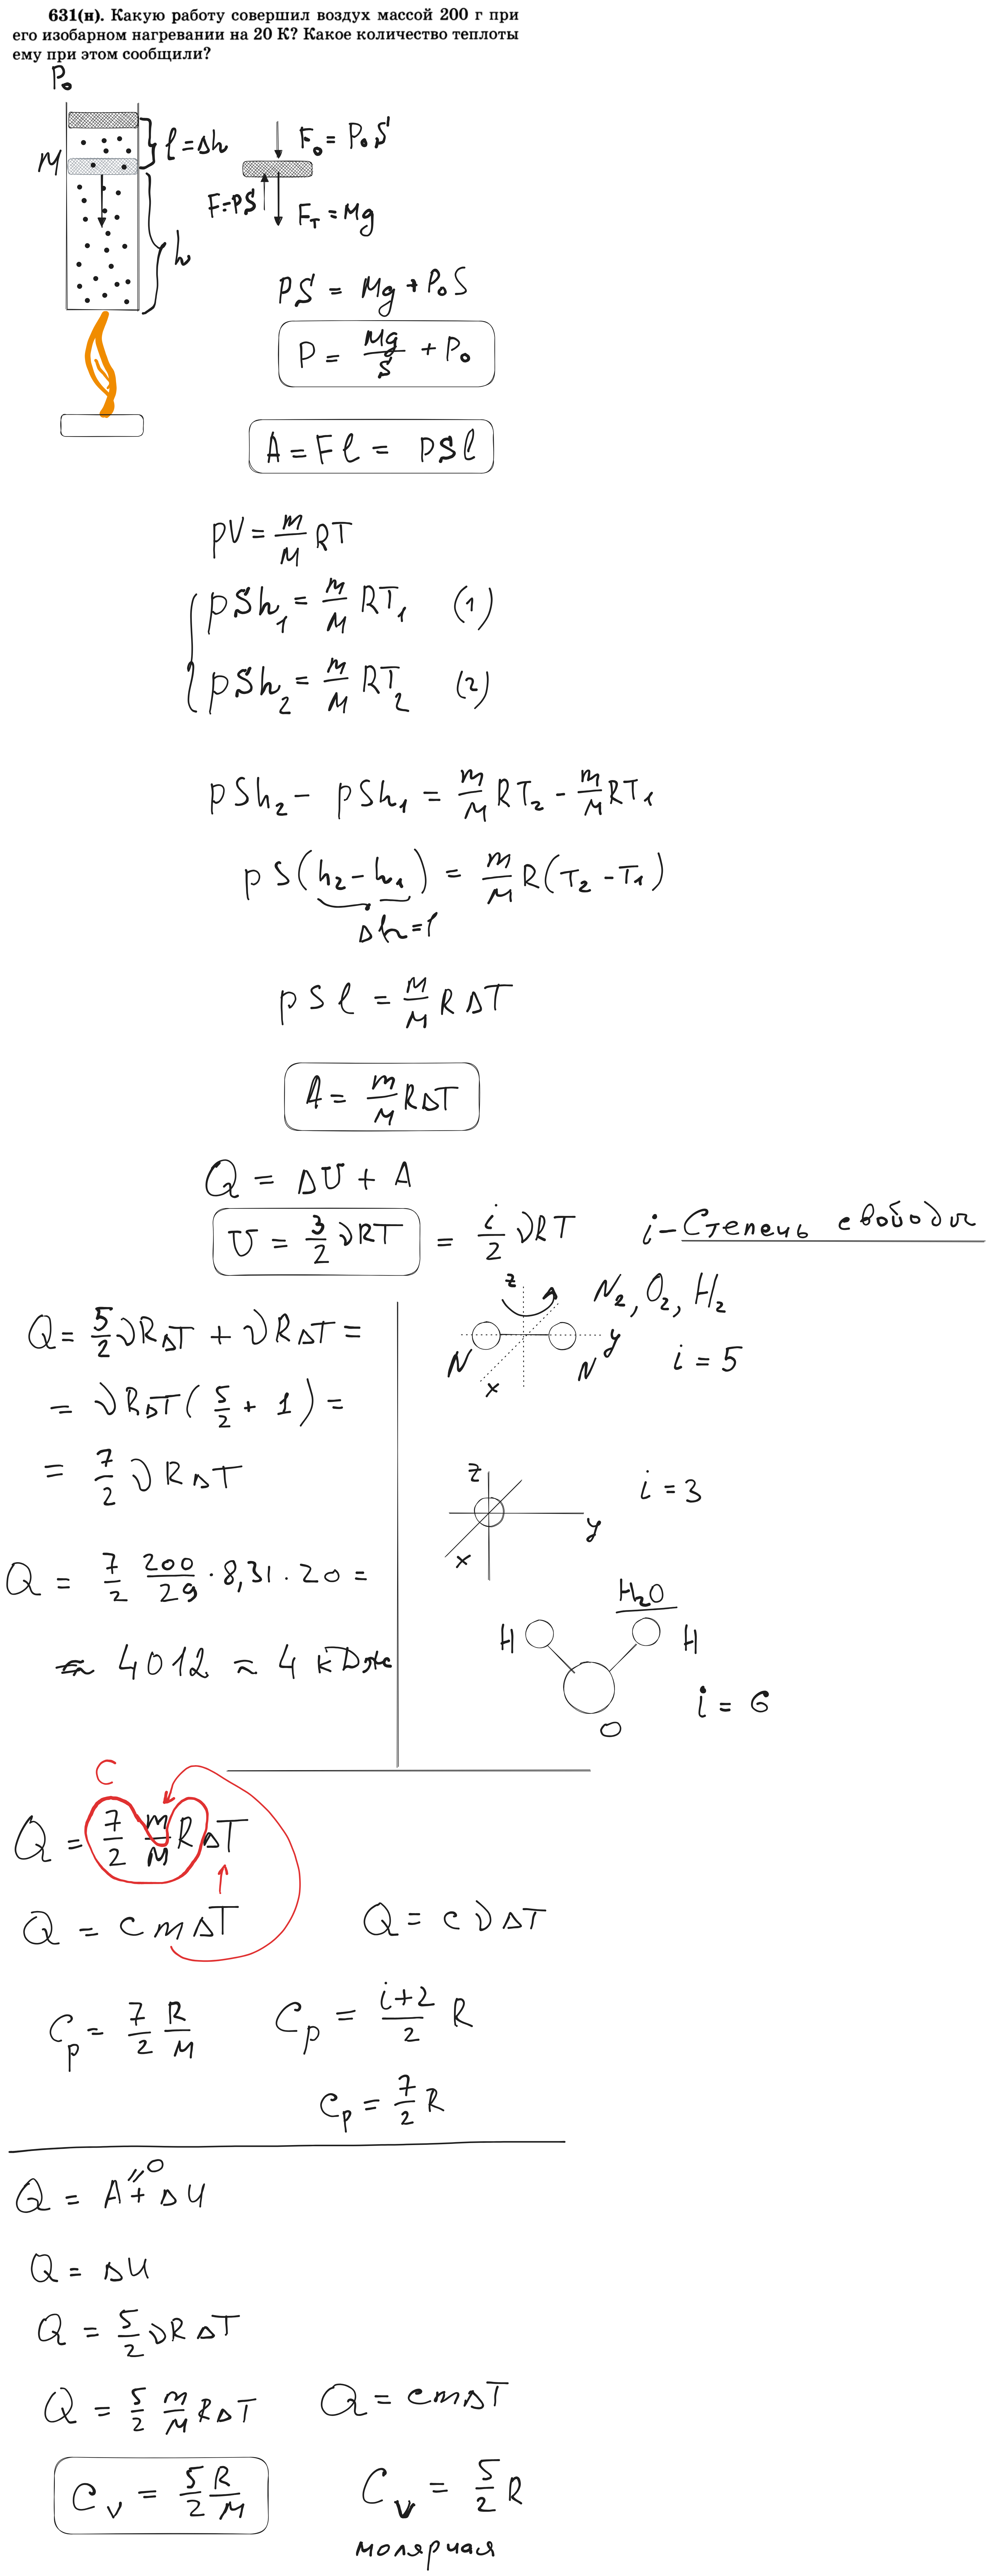 631(н). Какую работу совершил воздух массой 200 г при
его изобарном нагревании на 20 К? Какое количество теплоты
ему при этом сообщили?
P₀
M
l = Δh
h
F₀ = P₀S
F = PS
F_T = Mg
PS = Mg + P₀S
P = Mg/S + P₀
A = Fl = pSl
pV = m/M RT
pSh₁ = m/M RT₁ (1)
pSh₂ = m/M RT₂ (2)
pSh₂ - pSh₁ = m/M RT₂ - m/M RT₁
pS(h₂ - h₁) = m/M R(T₂ - T₁)
Δh = l
pSl = m/M RΔT
A = m/M RΔT
Q = ΔU + A
U = 3/2 νRT = i/2 νRT i - Степень свободы
z
N₂, O₂, H₂
y
N N
x
i = 5
Q = 5/2 νRΔT + νRΔT =
= νRΔT(5/2 + 1) =
= 7/2 νRΔT
z
i = 3
y
x
Q = 7/2 200/29 · 8,31 · 20 =
≈ 4012 ≈ 4 кДж
H₂O
H H
O
i = 6
C
Q = 7/2 m/M RΔT
Q = cmΔT Q = cνΔT
C_p = 7/2 R/M C_p = i+2/2 R
C_p = 7/2 R
Q = A + ΔU
=0
Q = ΔU
Q = 5/2 νRΔT
Q = 5/2 m/M RΔT Q = cmΔT
C_V = 5/2 R/M C_V = 5/2 R
молярная